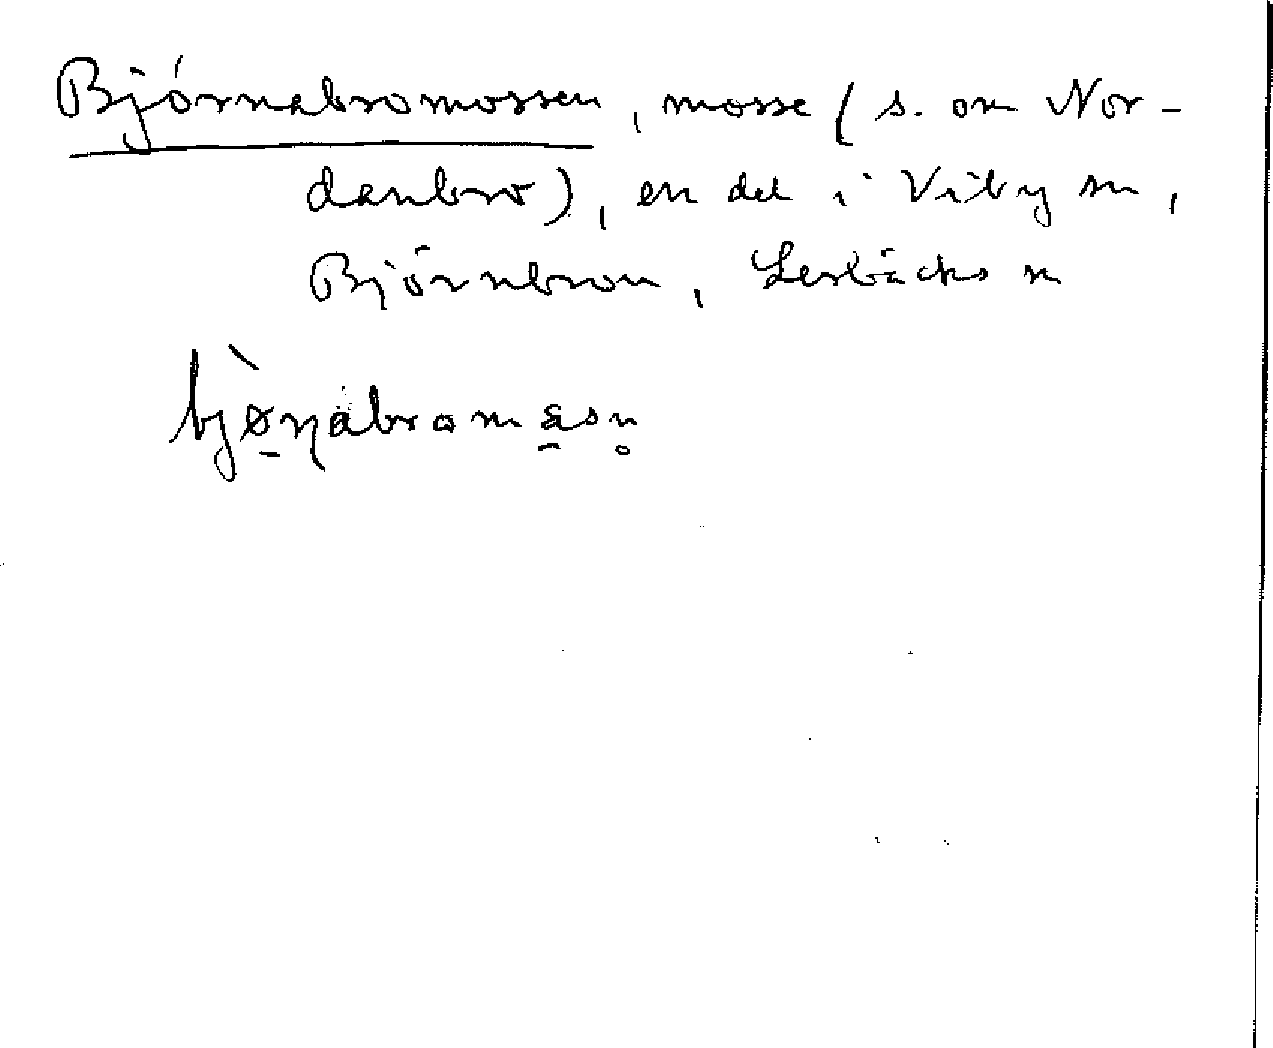 Björnabromossen, mosse (s. om Nor-
danbro), en del i Viby sn,
Björnbron, Lerbäcks sn
bjø̠̀ɳabromå̠sn̥